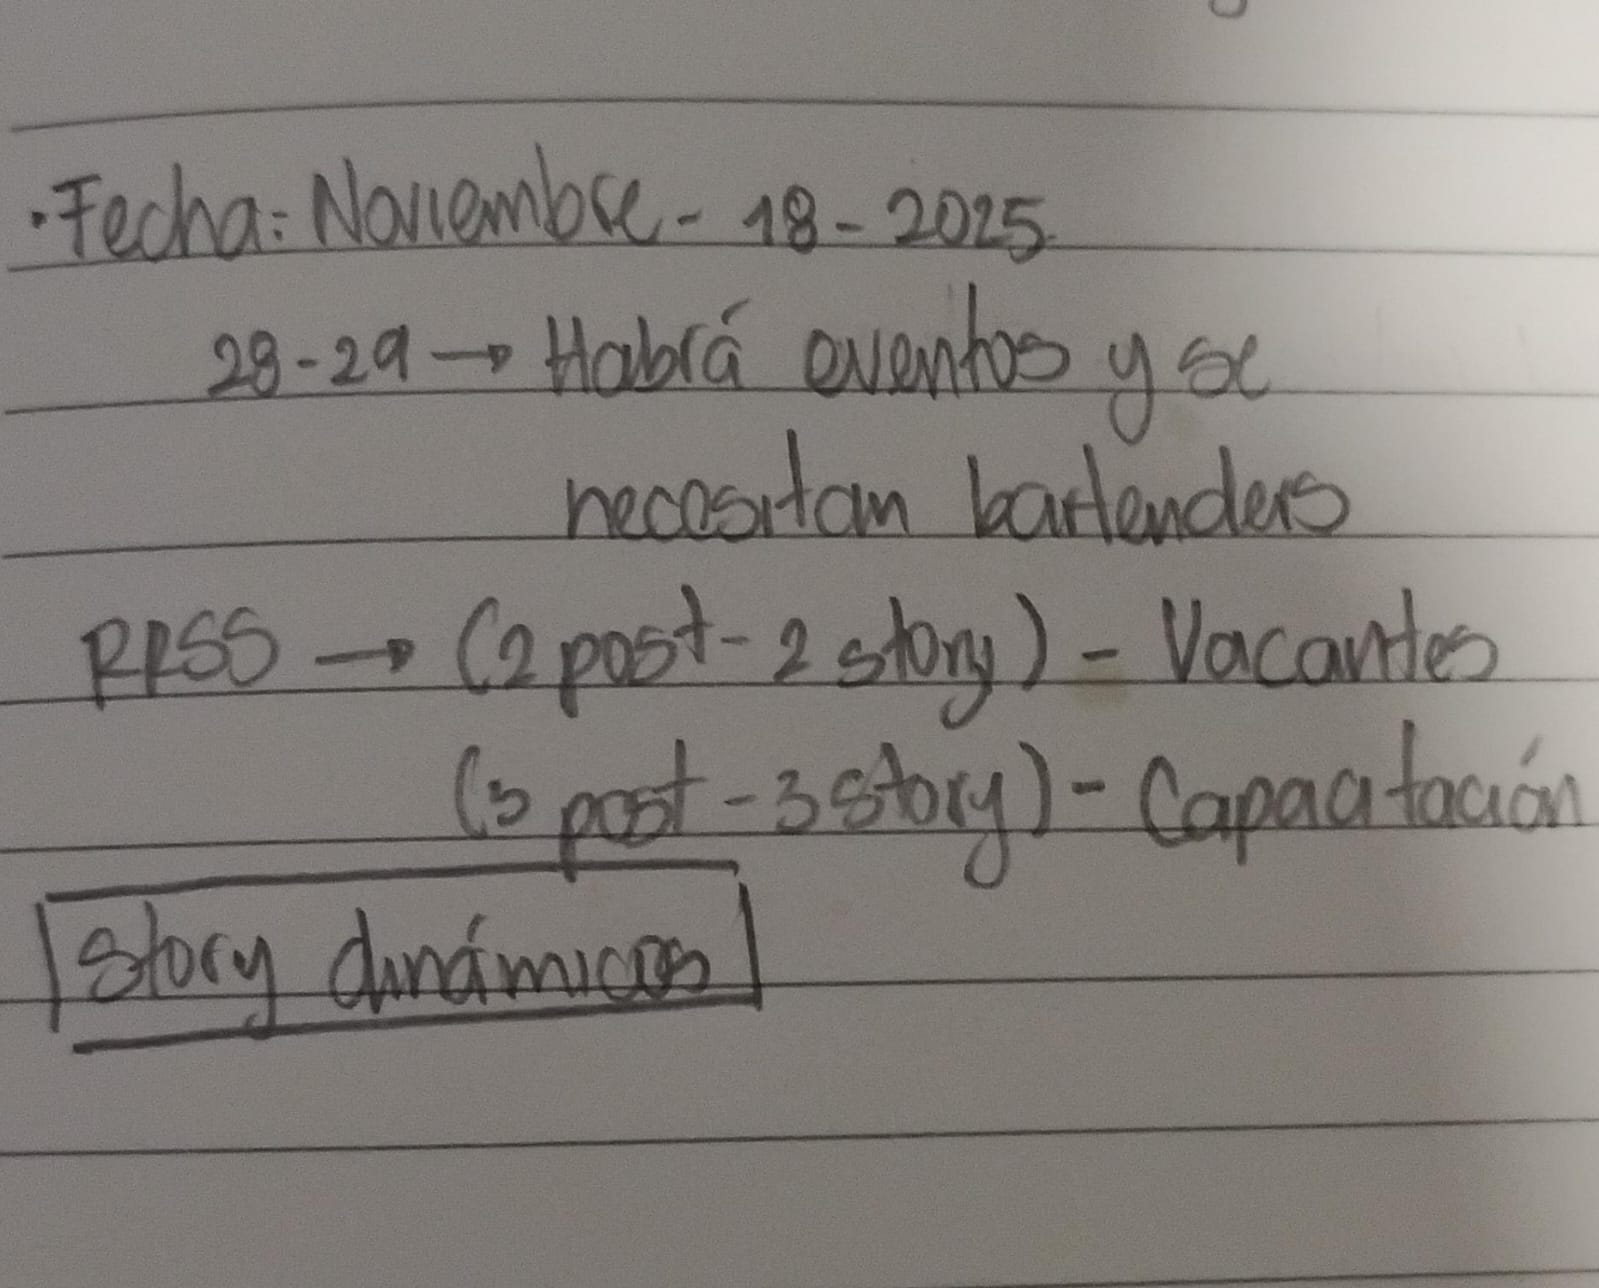 ·Fecha: Noviembre - 18 - 2025.
28-29 → Habrá eventos y se
necesitan bartenders
RRSS → (2 post - 2 story) - Vacantes
(3 post - 3 story) - Capacitación
Story dinámicos